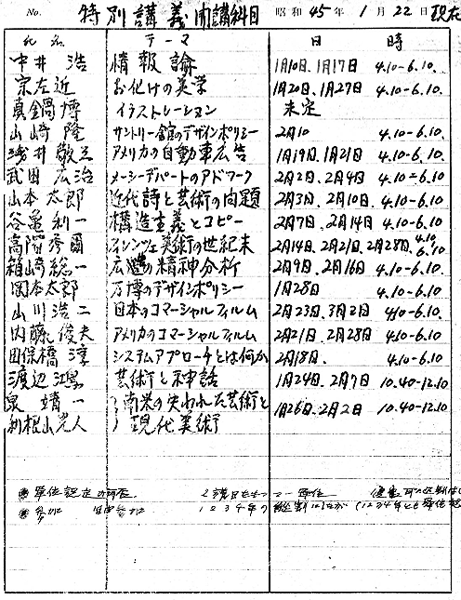 No. 特別講義開講科目 昭和45年1月22日現在
氏名 テーマ 日 時
中井 浩 情報論 1月10日、1月17日 4.10-6.10.
宗左近 お化けの美学 1月20日、1月27日 4.10-6.10
真鍋博 イラストレーション 未定
山崎 隆 サントリー館のデザインポリシー 2月10 4.10-6.10.
浅井敬三 アメリカの自動車広告 1月19日、1月21日 4.10-6.10.
武田広治 メーシーデパートのアドワーク 2月2日、2月4日 4.10-6.10
山本太郎 近代詩と芸術の問題 2月3日、2月10日、 4.10-6.10.
谷亀利一 構造主義とコピー 2月7日、2月14日 4.10-6.10
高階秀爾 美術の世紀末 2月14日、2月21日、2月28日、 4.10-6.10.
箱崎総一 広告の精神分析 2月9日、2月16日 4.10-6.10.
岡本太郎 万博のデザインポリシー 1月28日 4.10-6.10
山川浩二 日本のコマーシャルフィルム 2月23日、3月2日 4.10-6.10
内藤俊夫 アメリカのコマーシャルフィルム 2月21日、2月28日 4.10-6.10
田保橋 淳 システムアプローチとは何か 2月18日. 4.10-6.10.
渡辺 芸術と神話 1月24日、2月7日 10.40-12.10
泉 靖一 南米の失われた芸術と 1月26日、2月2日 10.40-12.10
利根山光人 現代美術
単位認定 2講目 単位
1234年